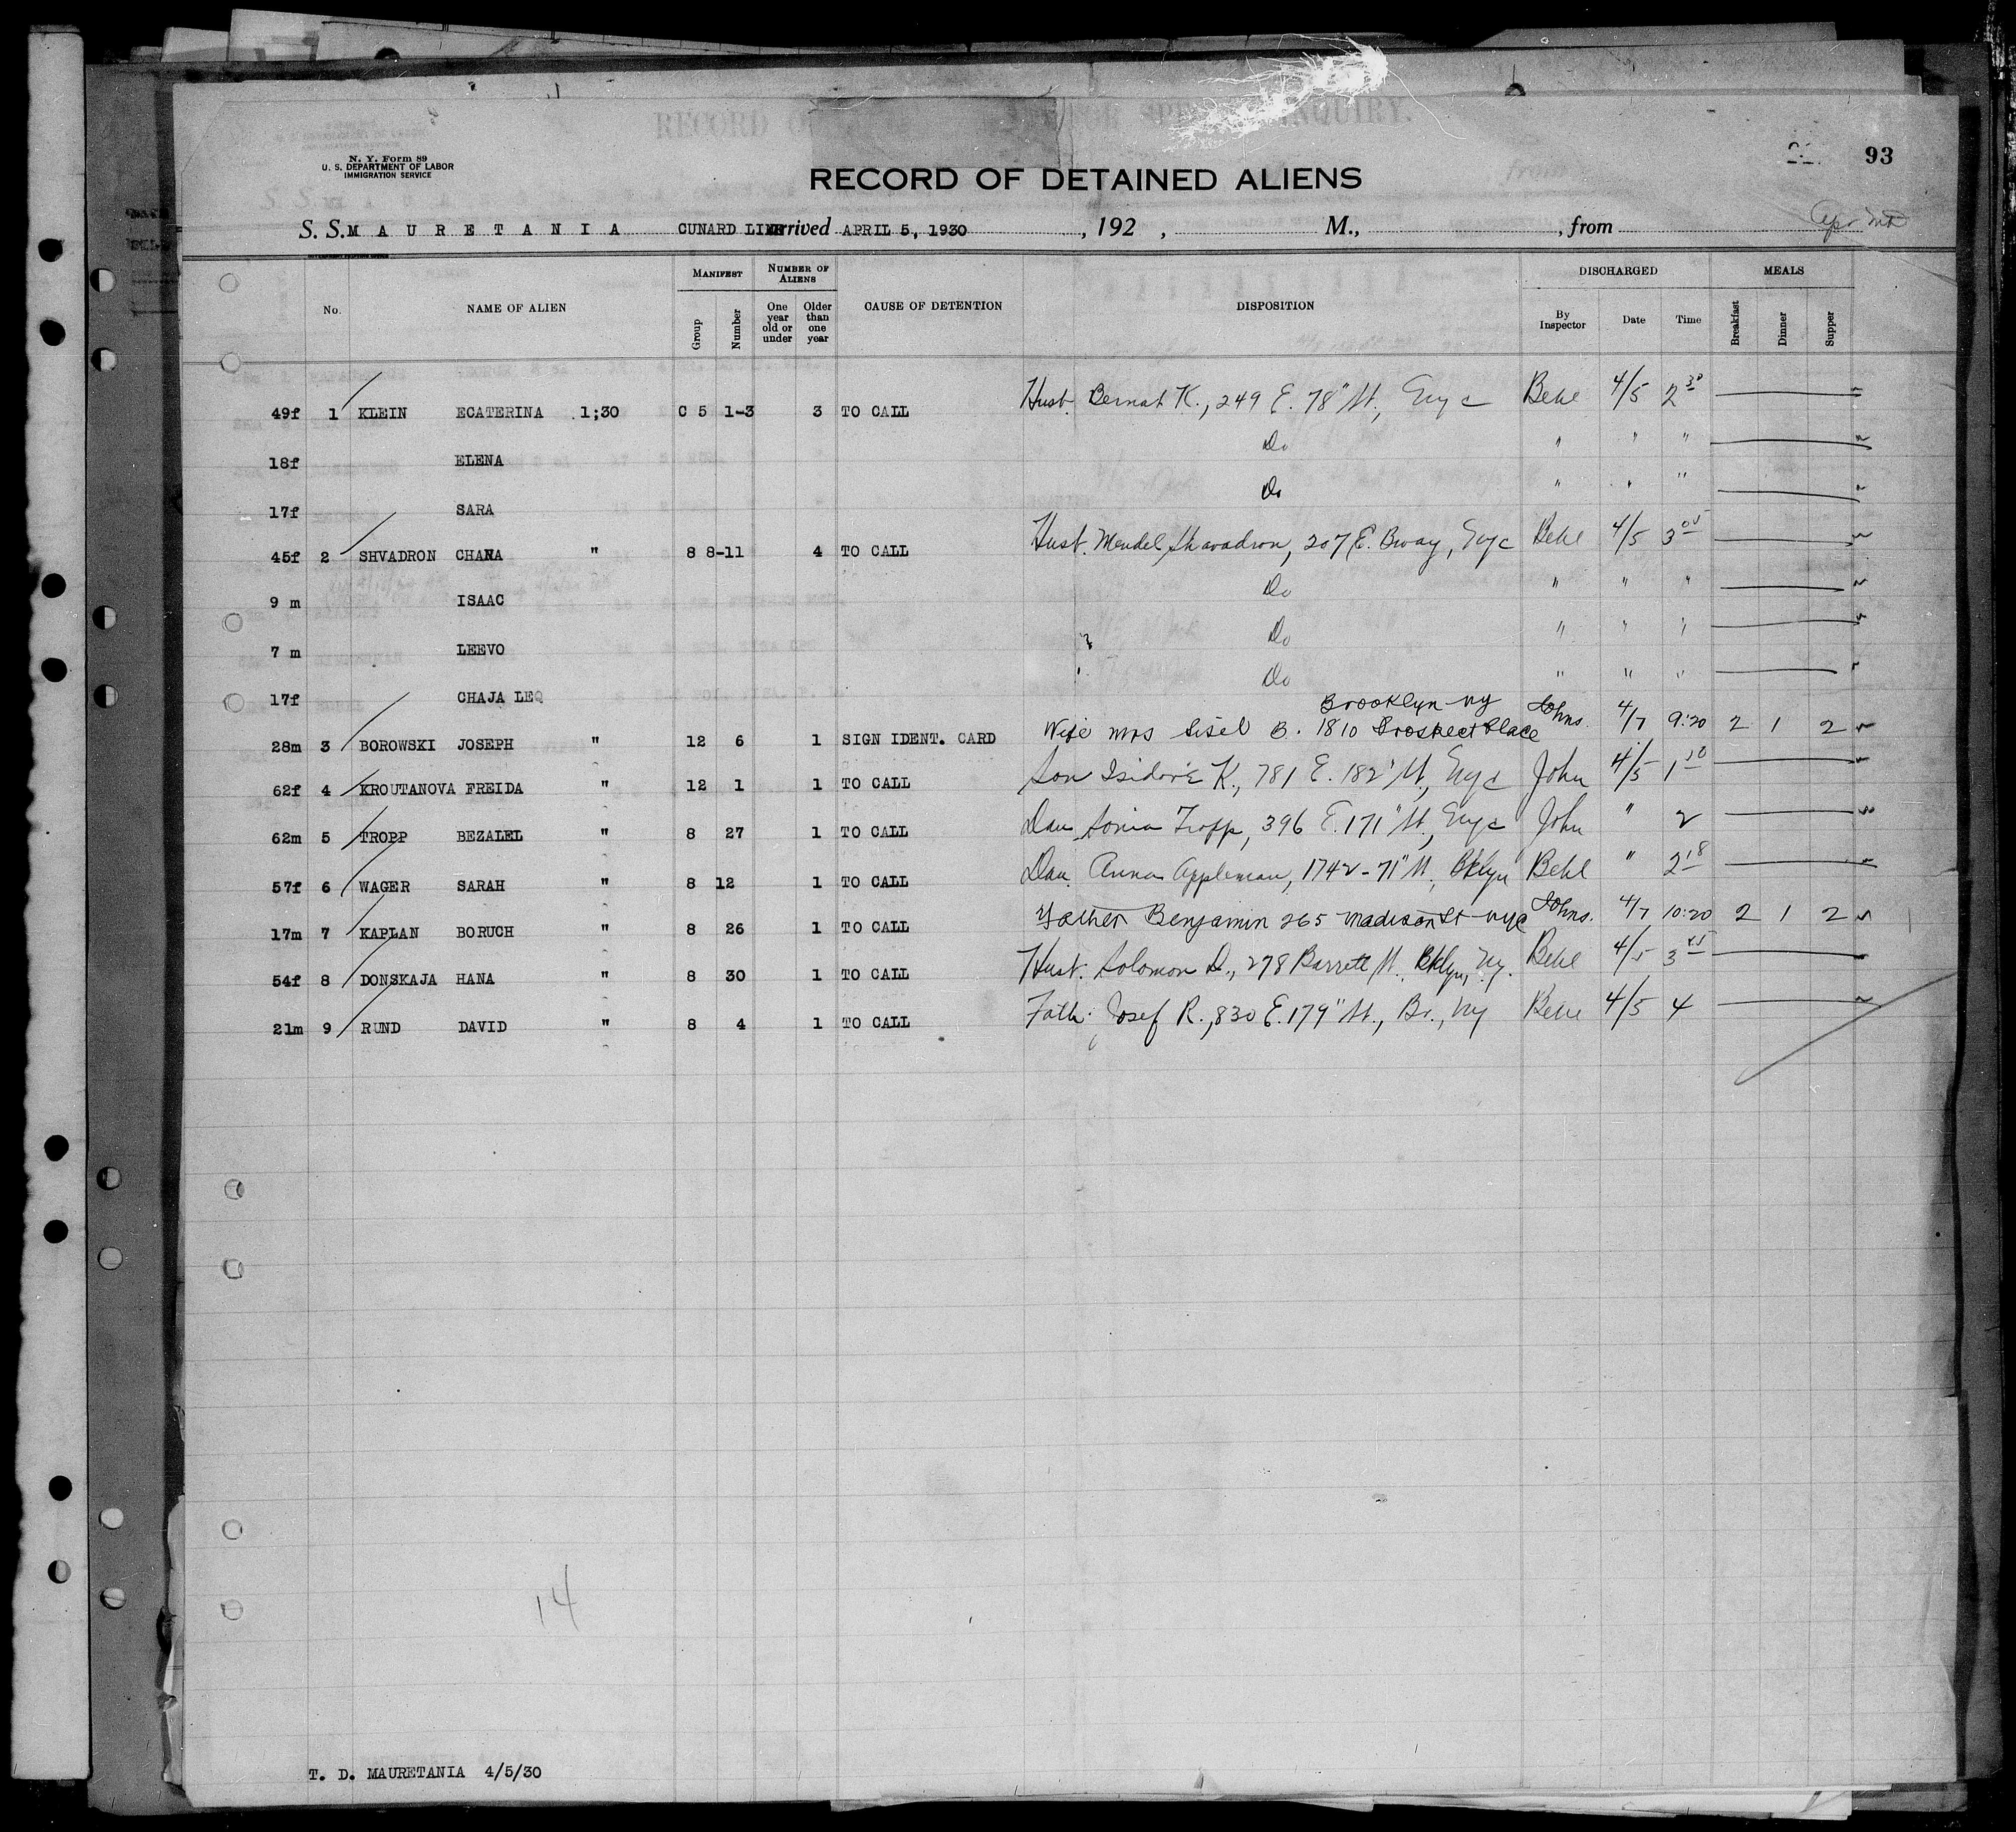 N. Y. Form 89
U. S. DEPARTMENT OF LABOR
IMMIGRATION SERVICE
93
RECORD OF DETAINED ALIENS
S. S. MAURETANIA CUNARD LINE arrived APRIL 5, 1930, 192 , M., from
No. NAME OF ALIEN MANIFEST Group Number NUMBER OF ALIENS One year old or under Older than one year CAUSE OF DETENTION DISPOSITION DISCHARGED By Inspector Date Time MEALS Breakfast Dinner Supper
49f 1 KLEIN ECATERINA 1;30 C 5 1-3 3 TO CALL Hust. Bernat K., 249 E. 78" St., Nyc Behl 4/5 2 30
18f ELENA Do " " "
17f SARA Do " " "
45f 2 SHVADRON CHANA " 8 8-11 4 TO CALL Hust. Mendel Shavadron, 207 E. Bway, Nyc Behl 4/5 3 05
9 m ISAAC Do " " "
7 m LEEVO Do " " "
17f CHAJA LEQ Do " " "
28m 3 BOROWSKI JOSEPH " 12 6 1 SIGN IDENT. CARD Wife Mrs Sisel B. 1810 Prospect Place Brooklyn NY Johns. 4/7 9:20 2 1 2
62f 4 KROUTANOVA FREIDA " 12 1 1 TO CALL Son Isidore K., 781 E. 182" St., Nyc John 4/5 1 10
62m 5 TROPP BEZALEL " 8 27 1 TO CALL Dau. Sonia Tropp, 396 E. 171" St., Nyc John " 2
57f 6 WAGER SARAH " 8 12 1 TO CALL Dau. Anna Appleman, 1742-71" St., Bklyn Behl " 2 18
17m 7 KAPLAN BORUCH " 8 26 1 TO CALL Father Benjamin 265 Madison St NYC Johns. 4/7 10:20 2 1 2
54f 8 DONSKAJA HANA " 8 30 1 TO CALL Hust. Solomon D., 278 Barrett St. Bklyn, Ny. Behl 4/5 3 45
21m 9 RUND DAVID " 8 4 1 TO CALL Fath. Josef R., 830 E. 179" St., Br., Ny Behl 4/5 4
14
T. D. MAURETANIA 4/5/30